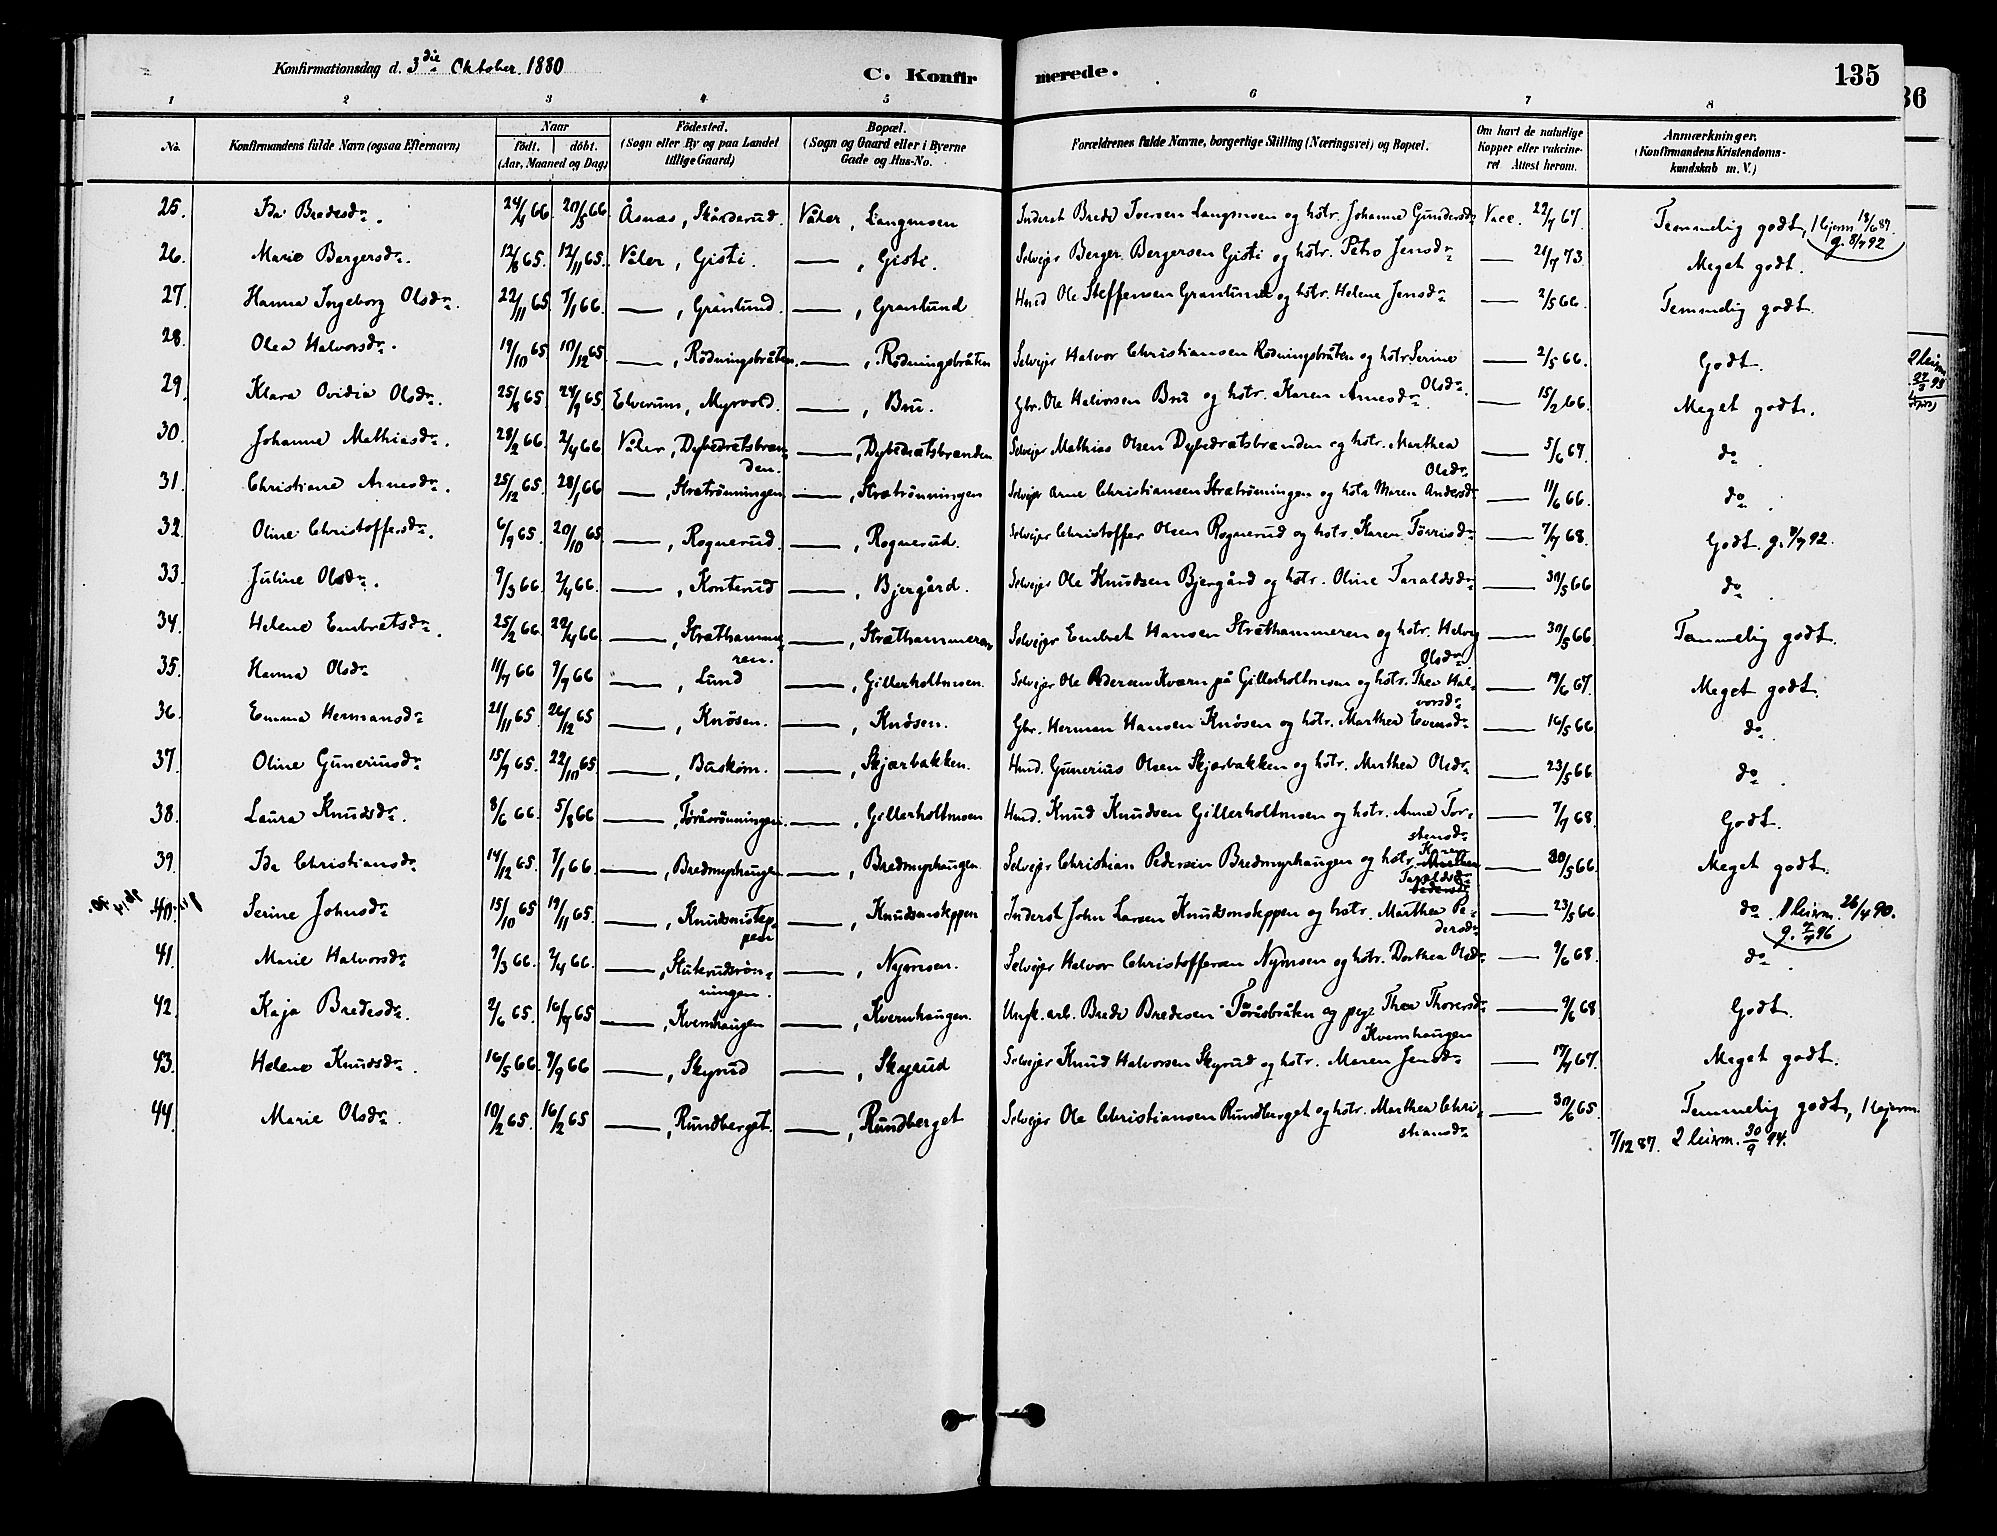 Konfirmationsdag d. 3die Oktober 1880
C. Konfirmerede.
135
1 2 3 4 5 6 7 8
No. Konfirmandens fulde Navn (ogsaa Efternavn) Naar født. døbt. (Aar, Maaned og Dag) Fødested. (Sogn eller By og paa Landet tillige Gaard) Bopæl. (Sogn og Gaard eller i Byerne Gade og Hus-No. Forældrenes fulde Navne, borgerlige Stilling (Næringsvei) og Bopæl. Om havt de naturlige Kopper eller vakcineret Attest herom. Anmærkninger. (Konfirmandens Kristendomskundskab m. V.)
25. Ida Bredesdr. 24/4 66 20/5 66 Åsnæs, Skårderud. Våler, Langmoen Inderst Brede Iversen Langmoen og hstr. Johanne Gundersdr Vacc. 22/7 67. Temmelig godt, 1 lejerm 18/6 87. g. 8/7 92
26. Marie Bergersdr. 12/8 65. 12/11 65. Våler, Gisti. —, Gisti. Selvejer Berger Bergersen Gisti og hstr. Petro Jensdr — 21/7 73. Meget godt.
27. Hanna Ingeborg Olsdr. 22/11 65 7/1 66. —, Granlund. —, Granlund Hmd Ole Steffensen Granlund og hstr. Helene Jensdr — 2/5 66. Temmelig godt.
28. Olea Halvorsdr. 19/10 65 10/12 65 —, Rødningsbråten. —, Rødningsbråten Selvejer Halvor Christiansen Rødningsbråten og hstr Serine Olsdr. — 2/5 66. Godt.
29. Klara Ovidia Olsdr. 25/8 65 24/9 65. Elverum, Myrvold. —, Bru. Gbr. Ole Halvorsen Bru og hstr. Karen Arnesdr — 15/2 66. Meget godt.
30. Johanne Mathiasdr. 28/2 66 2/4 66 Våler, Dybedratsbrænden. —, Dybedratsbrænden Selvejer Mathias Olsen Dybedratsbrænden og hstr. Marthea Olsdr — 5/6 67. do.
31. Christiane Arnesdr. 25/12 65. 28/1 66 —, Strætrønningen —, Strætrønningen Selvejer Arne Christiansen Strætrønningen og hstr Maren Andersdr — 11/6 66. do.
32. Oline Christoffersdr. 6/9 65. 20/10 65 —, Rognerud. —, Rognerud. Selvejer Christoffer Olsen Rognerud og hstr. Karen Tørrisdr — 7/7 68. Godt. g. 9/7 92.
33. Juline Olsdr. 9/3 66. 2/4 66. —, Konterud —, Bjergård. Selvejer Ole Knudsen Bjergård og hstr. Oline Taraldsdr — 30/5 66 do.
34. Helene Embretsdr. 25/2 66. 22/4 66 —, Stræthammeren. —, Stræthammeren Selvejer Embret Hansen Stræthammeren og hstr. Helvig Olsdr. — 30/5 66. Temmelig godt.
35. Hanna Olsdr 11/7 66 9/9 66 —, Lund —, Gillerholtmoen. Selvejer Ole Pedersen Kværn på Gillerholtmoen og hstr. Thea Halvorsdr. — 19/6 67. Meget godt.
36. Emma Hermansdr 21/11 65. 26/12 65 —, Knøsen. —, Knøsen. Gbr. Herman Hansen Knøsen og hstr. Marthea Evensdr — 16/5 66. do.
37. Oline Guneriusdr 15/9 65. 22/10 65. —, Buskom. —, Skjærbakken. Hmd. Gunerius Olsen Skjærbakken og hstr. Marthea Olsdr — 23/5 66. do.
38. Laura Knudsdr. 8/6 66. 5/8 66 —, Føråsrønningen. —, Gillerholtmoen Hmd. Knud Knudsen Gillerholtmoen og hstr. Anne Torstensdr — 7/7 68. Godt.
39. Ida Christiansdr 14/12 65. 7/1 66. —, Bredmyrhaugen —, Bredmyrhaugen. Selvejer Christian Pedersen Bredmyrhaugen og hstr. Karen Taraldsdr — 30/5 66 Meget godt.
40. Serine Johnsdr 15/10 65 19/11 65. —, Knudsmoteppen —, Knudsmoteppen Inderst John Larsen Knudsmoteppen og hstr. Marthea Pedersdr — 23/5 66. do. 1 leierm. 26/4 90. g. 7/7 96
41. Marie Halvorsdr 9/3 66. 2/4 66. —, Stuterudrønningen. —, Nymoen. Selvejer Halvor Christoffersen Nymoen og hstr. Dorthea Olsdr — 9/6 68. do.
42. Kaja Bredesdr. 2/6 65. 16/7 65 —, Kvernhaugen —, Kvernhaugen. Ungk. arb. Brede Bredesen Føråsbråten og pige Thea Thoresdr Kvernhaugen — 9/6 68. Godt.
43. Helene Knudsdr. 16/5 66. 9/9 66 —, Skyrud —, Skyrud Selvejer Knud Halvorsen Skyrud og hstr. Maren Jensdr — 17/7 67. Meget godt.
44. Marie Olsdr. 10/2 65. 16/2 65 —, Rundberget. —, Rundberget Selvejer Ole Christiansen Rundberget og hstr. Marthea Christiansdr — 30/6 65. Temmelig godt, 1 lejerm. 7/12 87. 2 leierm. 30/9 94.